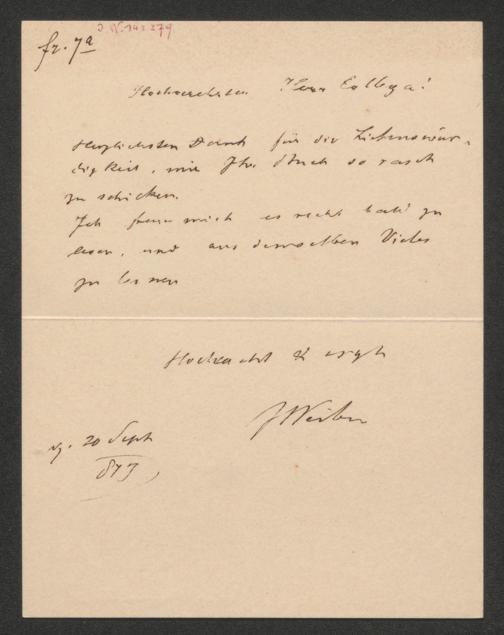 fr. 7a
I.N. 142279
Hochverehrter Herr Collega!
Herzlichsten Dank für die Liebenswür-
digkeit, mir Ihr Buch so rasch
zu schicken.
Ich freue mich es recht bald zu
lesen, und aus demselben Vieles
zu lernen
Hochacht &
20 Sept